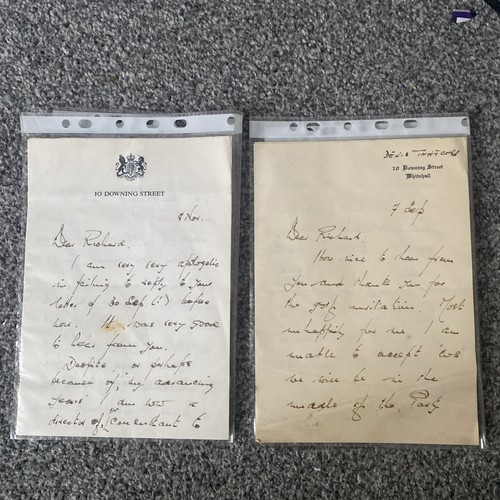 10 DOWNING STREET
8 Nov.
Dear Richard,
I am very very apologetic
in failing to reply to your
letter of 30 Sept (!) before
now. It was very good
to hear from you.
Despite, or perhaps
because of, my advancing
years I am now a
director of, or consultant to
DENIS THATCHER
10 Downing Street
Whitehall
7 Sep
Dear Richard,
How nice to hear from
you and thank you for
the golf invitation. Most
unhappily for me I am
unable to accept 'cos'
we will be in the
middle of the Party